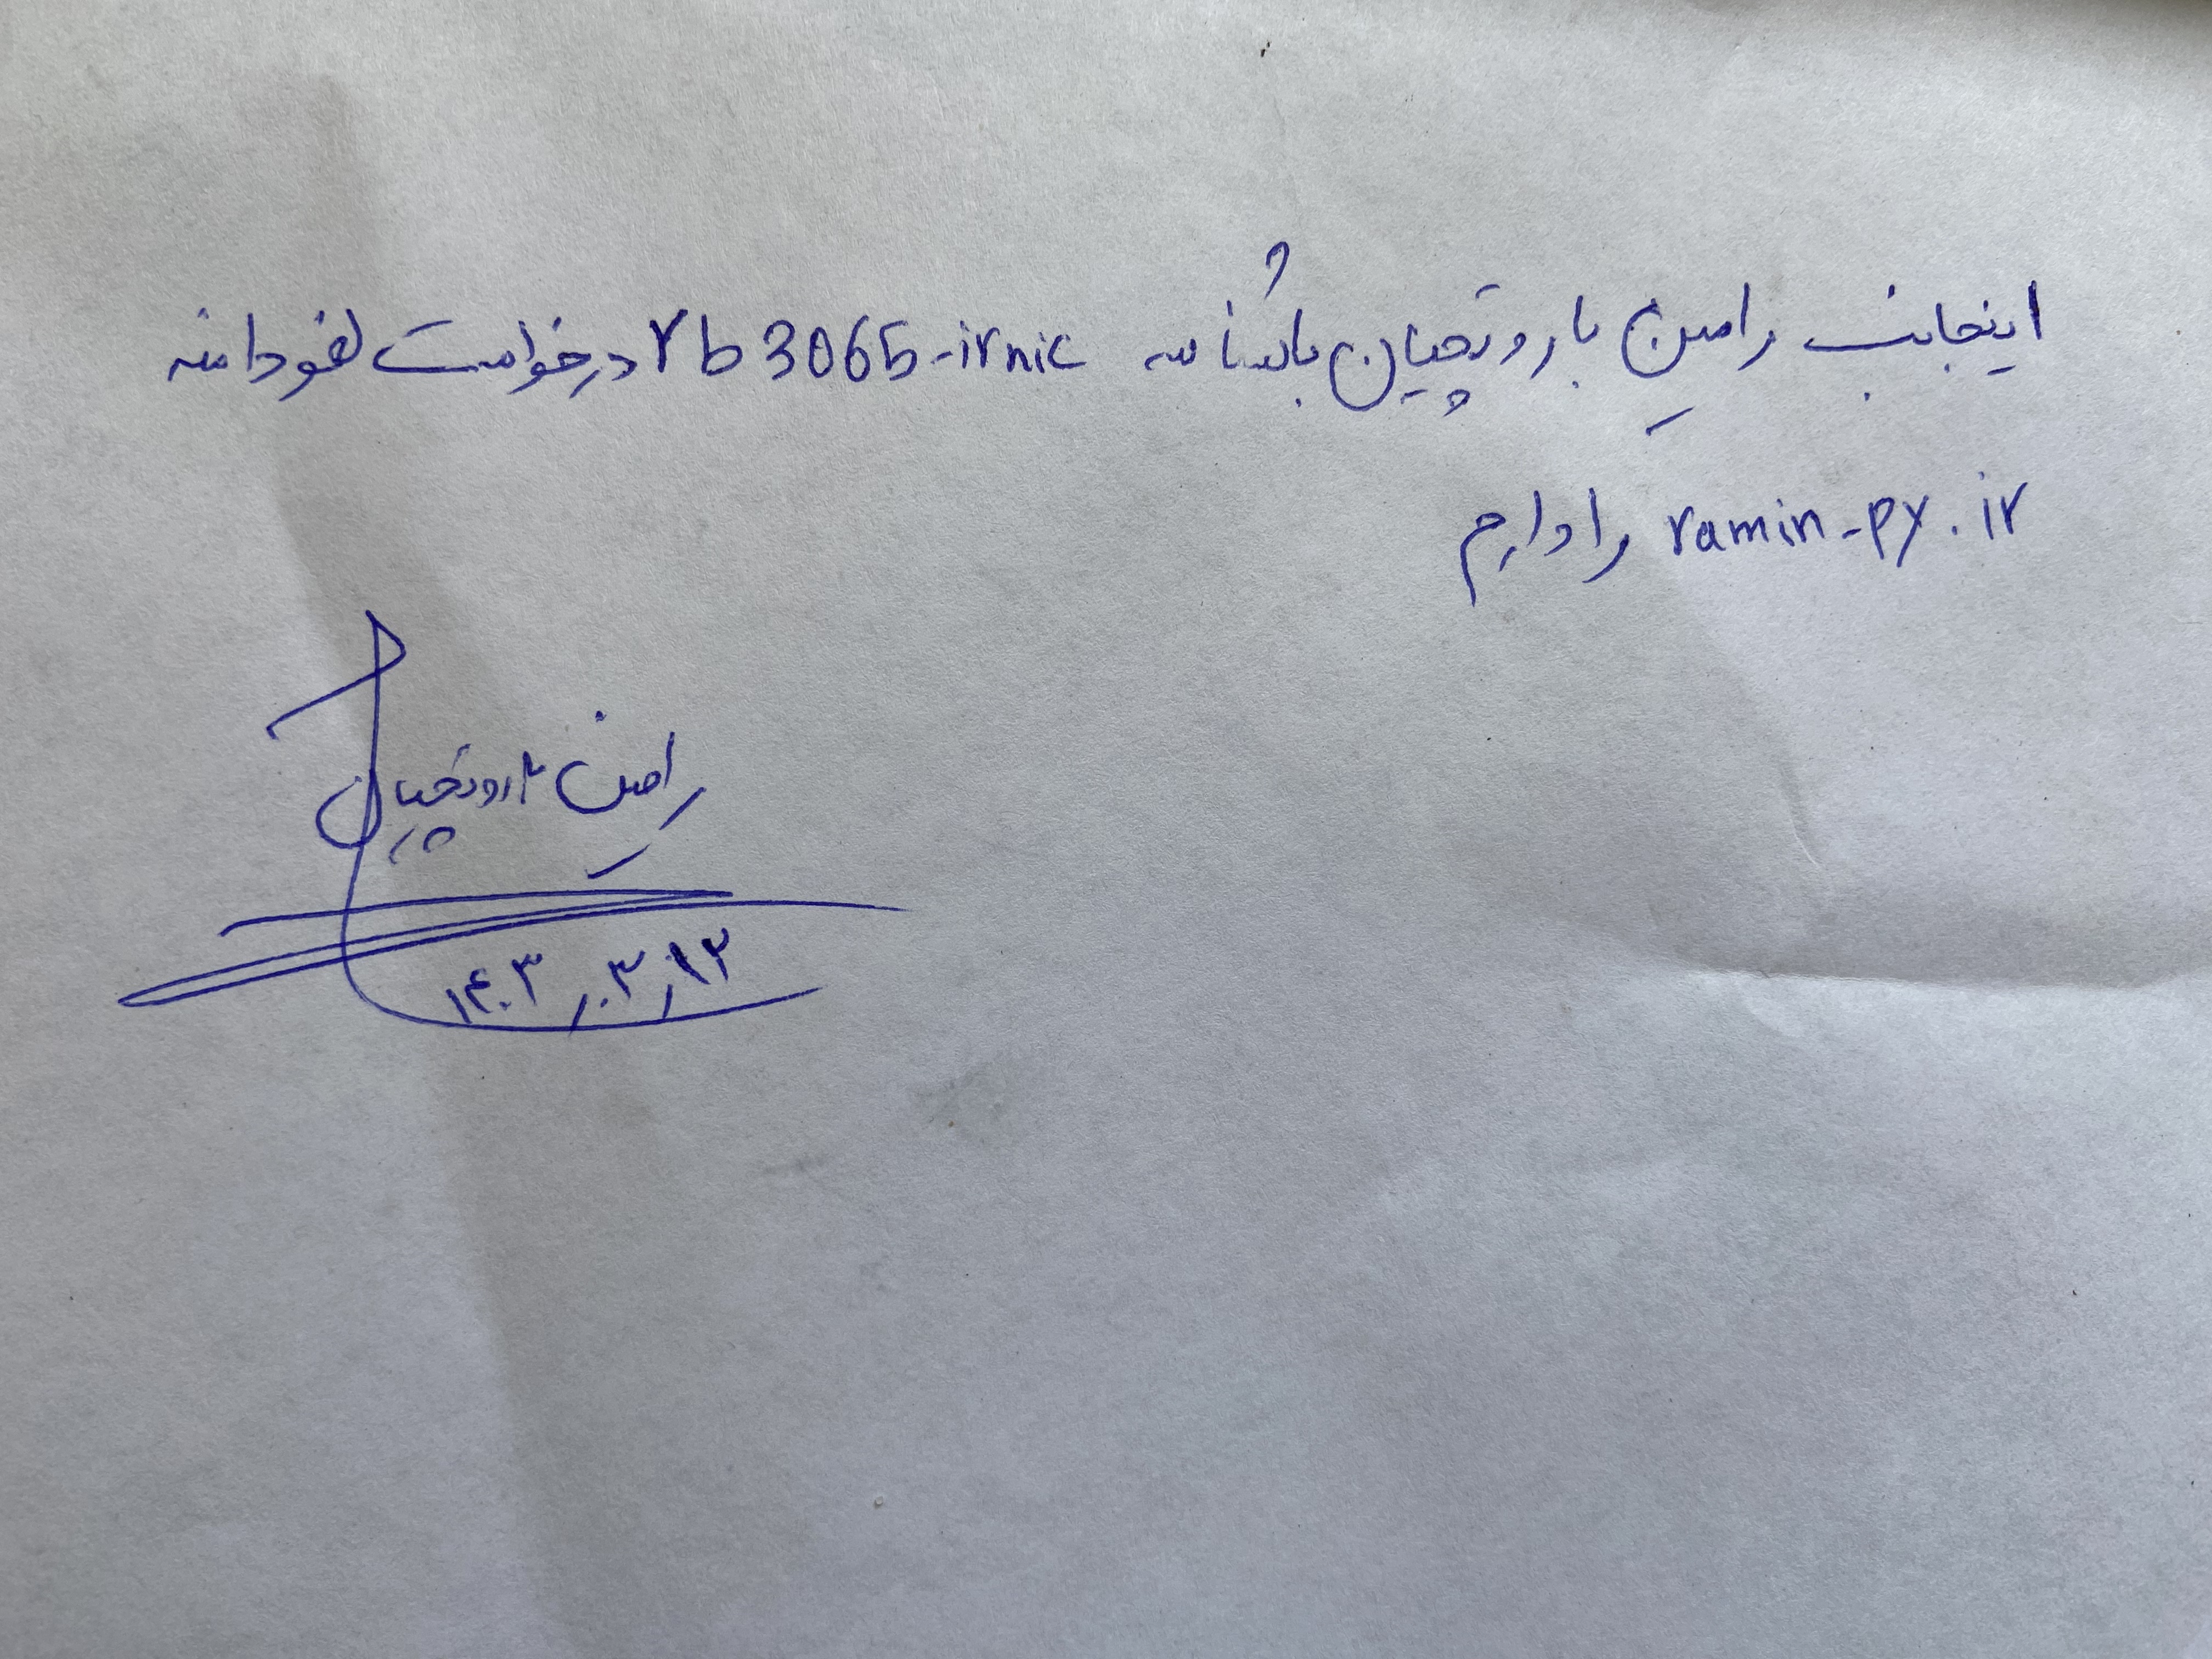 اینجانب رامین باروتچیان باشناسه rb3065-irnic درخواست لغو دامنه
ramin-py.ir را دارم
رامین باروتچیان
۱۴۰۳/۰۳/۱۲